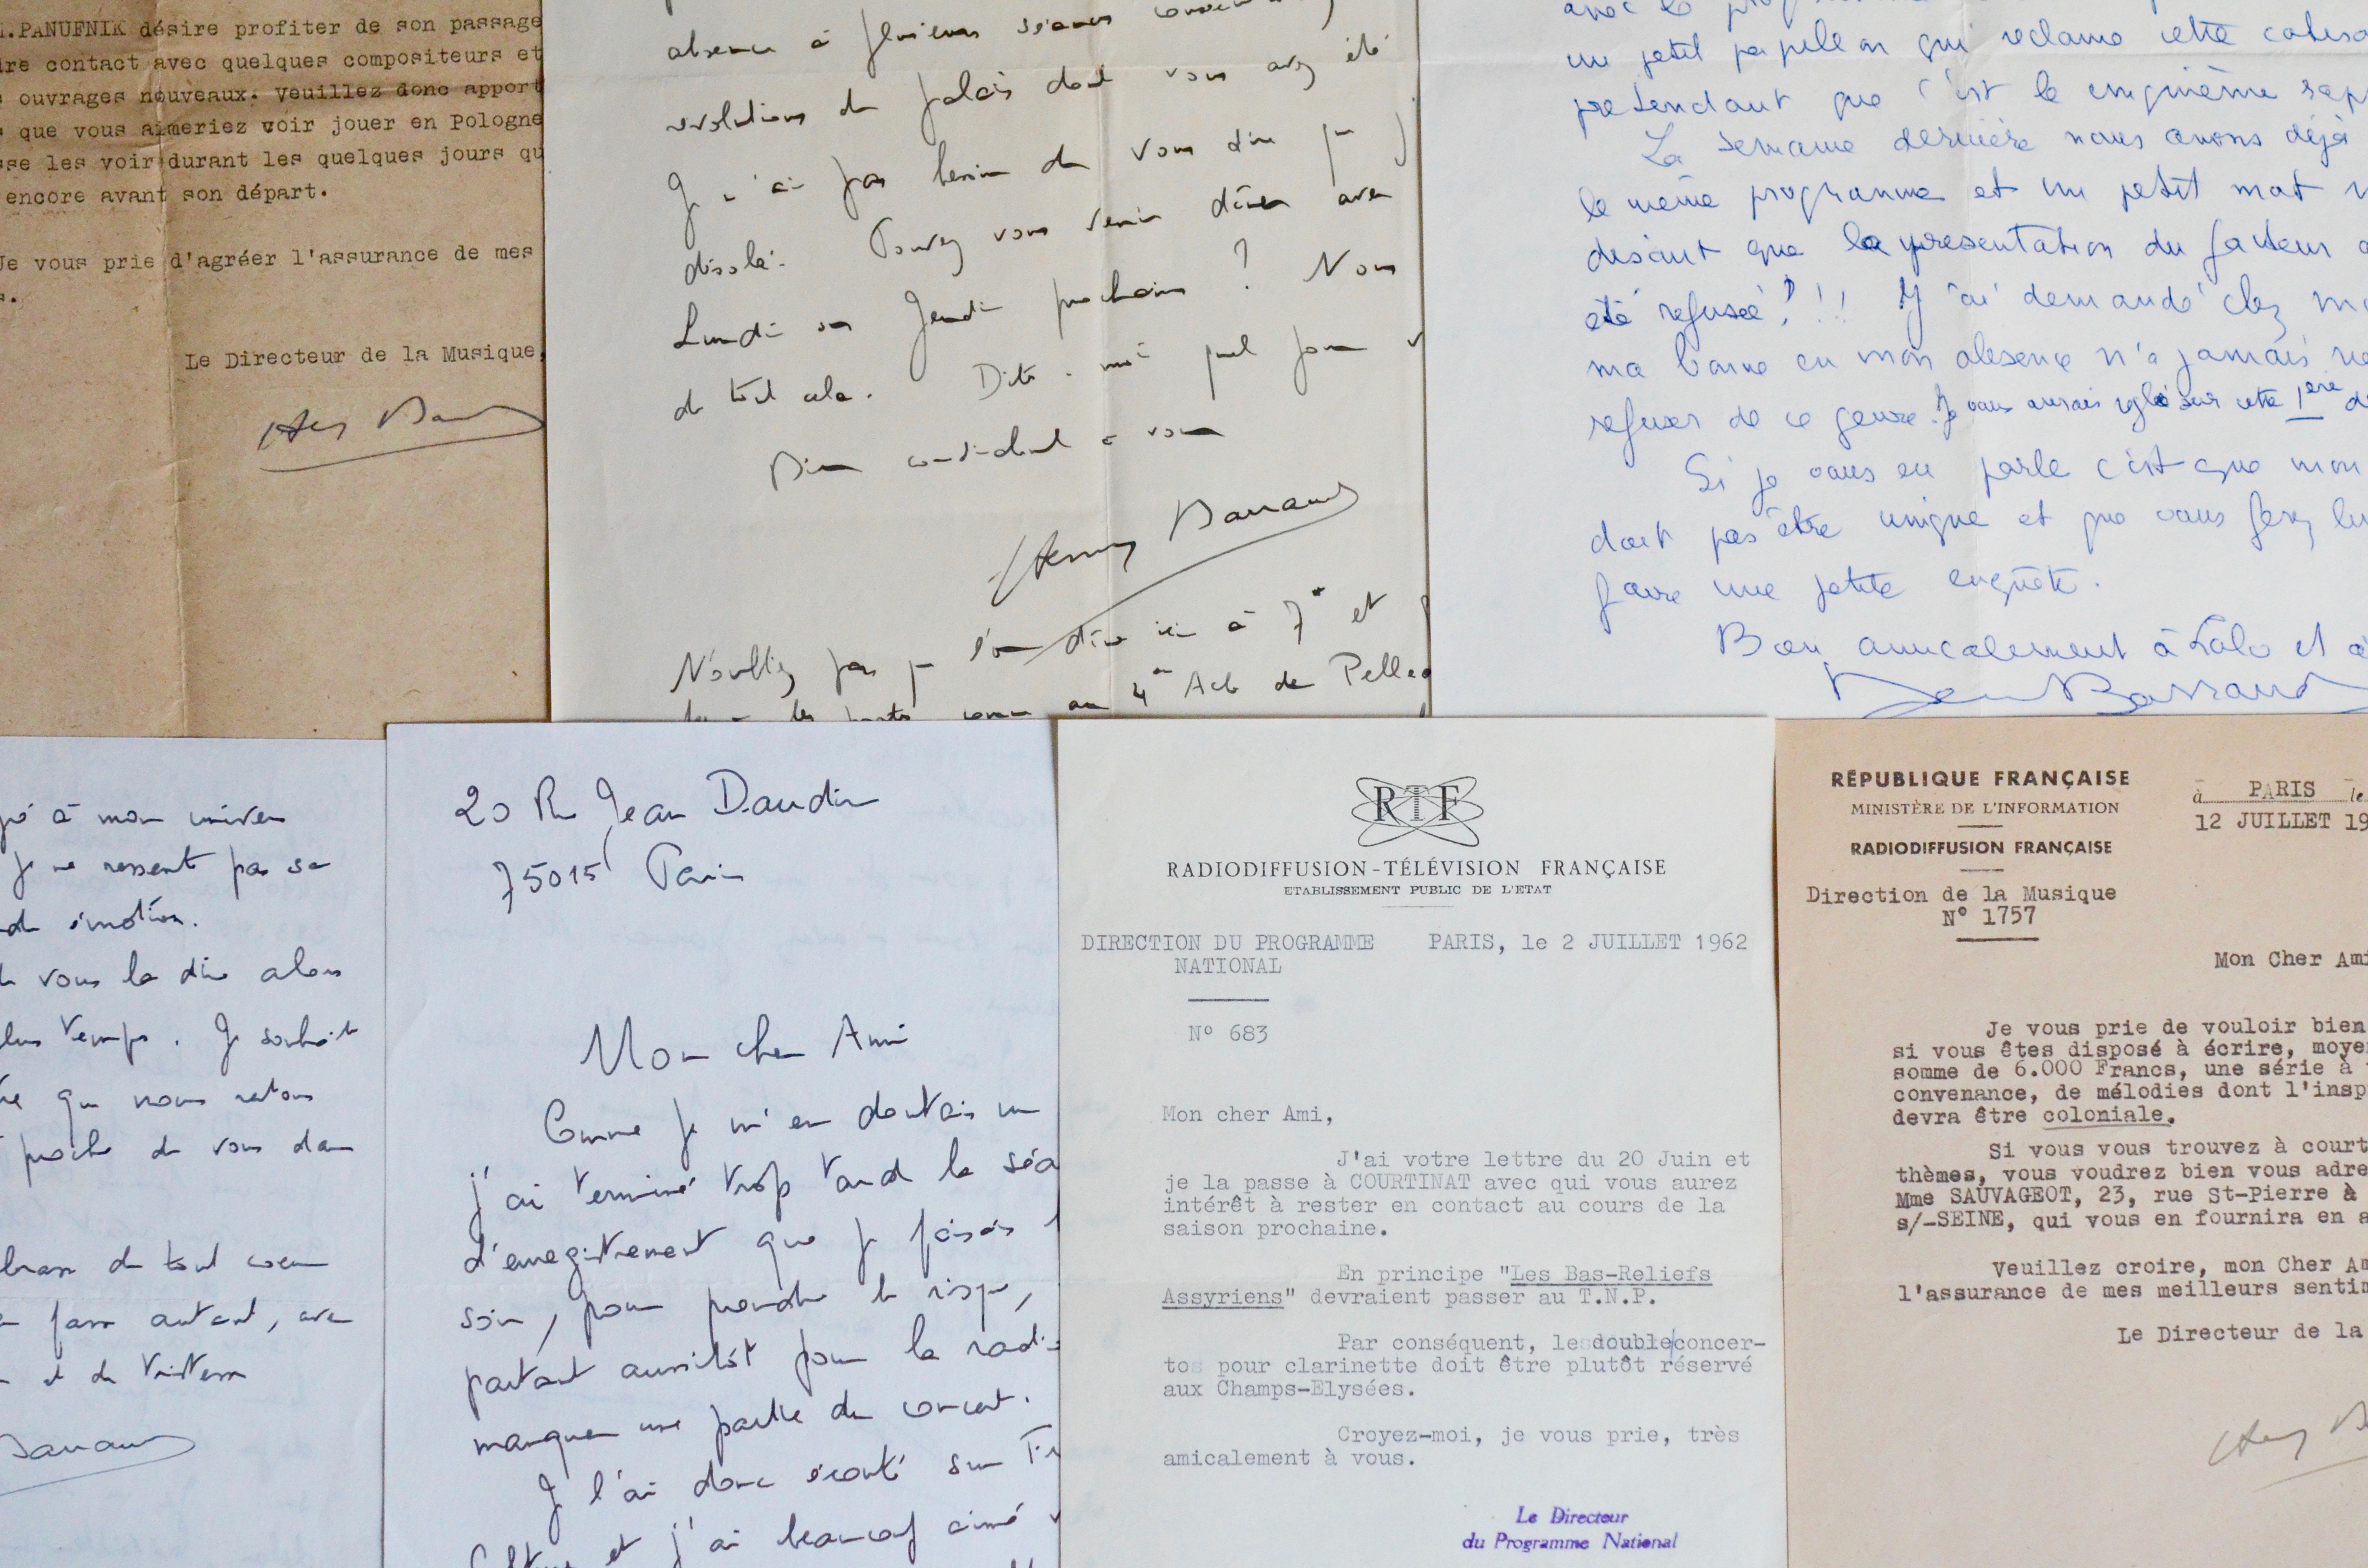 .PANUFNIK désire profiter de son passage
re contact avec quelques compositeurs et
ouvrages nouveaux. Veuillez donc apport
que vous aimeriez voir jouer en Pologne
sse les voir durant les quelques jours qu
encore avant son départ.
Je vous prie d'agréer l'assurance de mes
Le Directeur de la Musique,
absence à plusieurs séances
révolutions de palais dont vous avez été
Je n'ai pas besoin de vous dire
désolé. Pouvez vous venir dîner avec
Lundi ou Jeudi prochain ? Nous
de tout cela. Dites-moi quel jour
Bien cordialement à vous
Henry Barraud
N'oubliez pas que l'on dîne ici à 7h et
4me Acte de Pelleas
un petit papillon qui réclame cette
prétendant que c'est le cinquième
La semaine dernière nous avons déjà
le même programme et un petit mot
disant que la présentation du facteur
été refusée!!! J'ai demandé chez
ma bonne en mon absence n'a jamais
refuser de ce genre. Je vous aurais réglé sur cette 1ère
Si je vous en parle c'est que mon
doit pas être unique et que vous ferez
faire une petite enquête.
Bien amicalement à Lalo et
Barraud
à mon univers
je ne ressent pas sa
émotion.
vous le dire alors
temps. Je souhaite
que nous restons
proche de vous dans
de tout coeur
autant, avec
et de tristesse
Barraud
20 Rue Jean Daudin
75015 Paris
Mon cher Ami
Comme je m'en doutais un
j'ai terminé trop tard la séa
d'enregistrement que je faisais
soir, pour prendre le risque,
partant aussitôt pour la radio
manquer une partie du concert.
Je l'ai donc écouté sur Fr
et j'ai beaucoup aimé
RTF
RADIODIFFUSION-TÉLÉVISION FRANÇAISE
ETABLISSEMENT PUBLIC DE L'ETAT
DIRECTION DU PROGRAMME NATIONAL
PARIS, le 2 JUILLET 1962
N° 683
Mon cher Ami,
J'ai votre lettre du 20 Juin et
je la passe à COURTINAT avec qui vous aurez
intérêt à rester en contact au cours de la
saison prochaine.
En principe "Les Bas-Reliefs
Assyriens" devraient passer au T.N.P.
Par conséquent, le double concer-
to pour clarinette doit être plutôt réservé
aux Champs-Elysées.
Croyez-moi, je vous prie, très
amicalement à vous.
Le Directeur
du Programme National
RÉPUBLIQUE FRANÇAISE
MINISTÈRE DE L'INFORMATION
RADIODIFFUSION FRANÇAISE
Direction de la Musique
N° 1757
à PARIS le
12 JUILLET 19
Mon Cher Ami
Je vous prie de vouloir bien
si vous êtes disposé à écrire, moye
somme de 6.000 Francs, une série à
convenance, de mélodies dont l'insp
devra être coloniale.
Si vous vous trouvez à court
thèmes, vous voudrez bien vous adre
Mme SAUVAGEOT, 23, rue St-Pierre à
s/-SEINE, qui vous en fournira en a
Veuillez croire, mon Cher Am
l'assurance de mes meilleurs sentim
Le Directeur de la